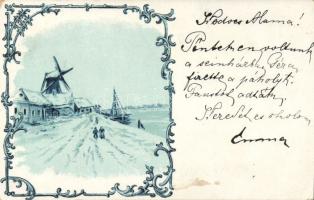 Kedves Mama!
Pénteken voltunk
a szinházb. Géza
fizette a páholyt.
Faustot adták,
Szeretet és csókol
Emma